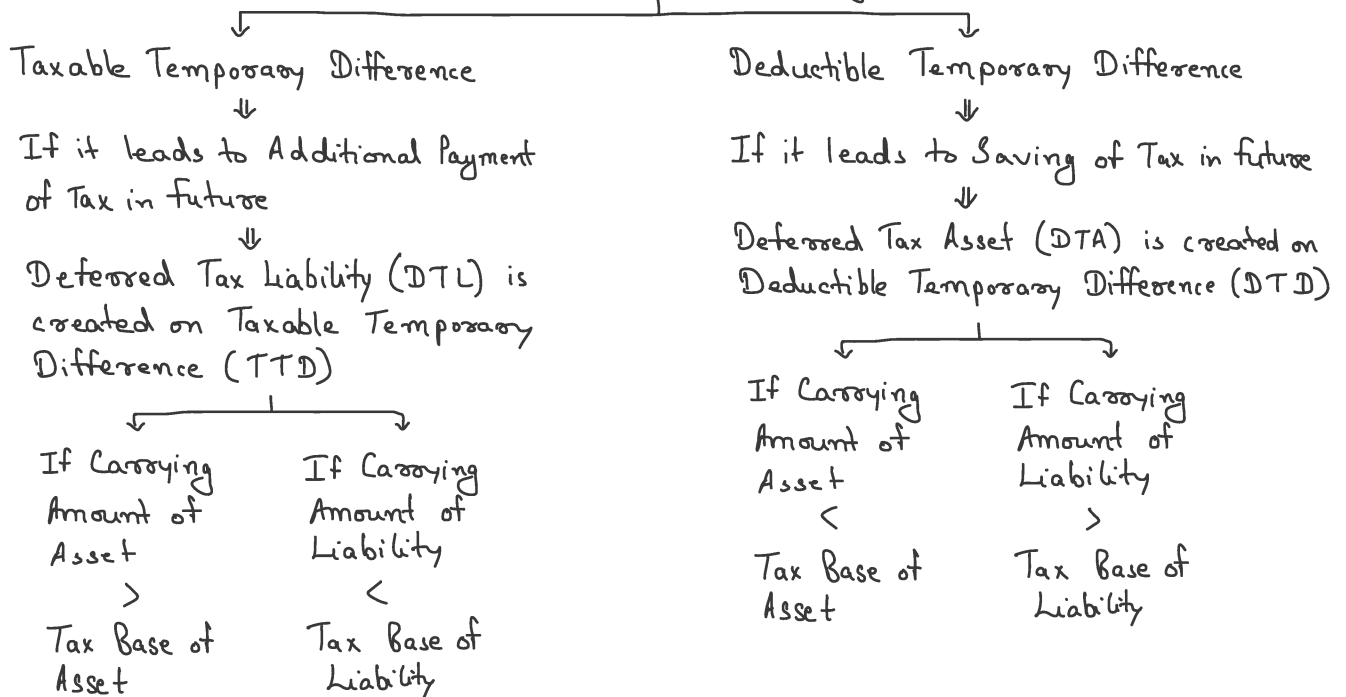 Taxable Temporary Difference
⇓
If it leads to Additional Payment
of Tax in future
⇓
Deferred Tax Liability (DTL) is
created on Taxable Temporary
Difference (TTD)
If Carrying
Amount of
Asset
>
Tax Base of
Asset
If Carrying
Amount of
Liability
<
Tax Base of
Liability
Deductible Temporary Difference
⇓
If it leads to Saving of Tax in future
⇓
Deferred Tax Asset (DTA) is created on
Deductible Temporary Difference (DTD)
If Carrying
Amount of
Asset
<
Tax Base of
Asset
If Carrying
Amount of
Liability
>
Tax Base of
Liability